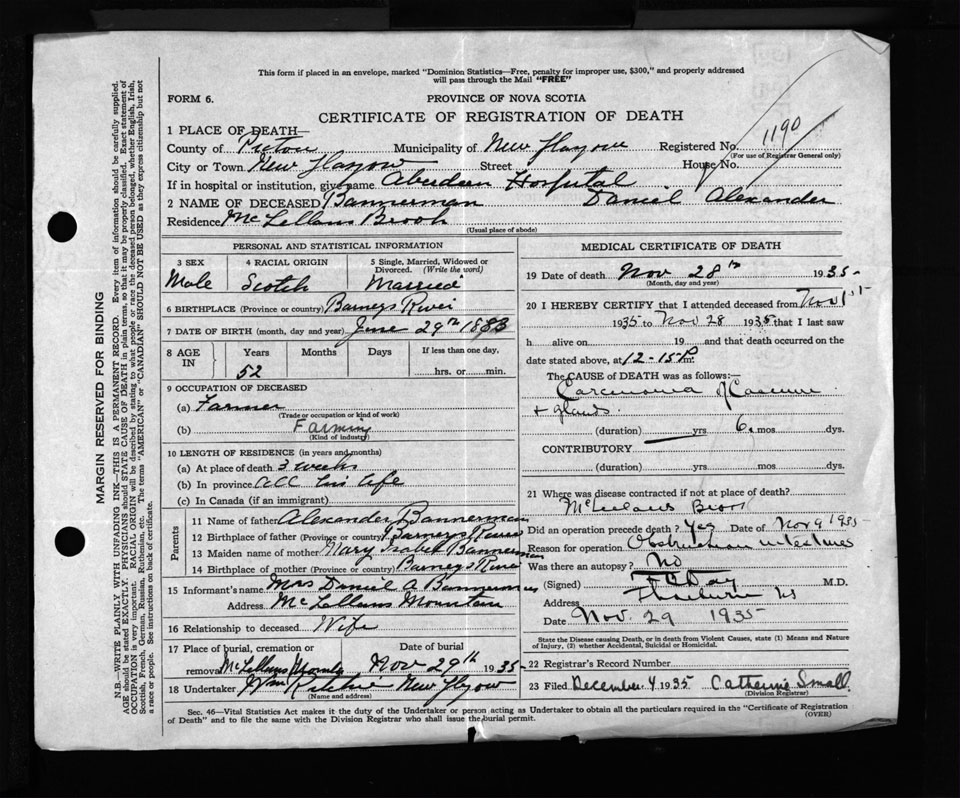 This form if placed in an envelope, marked "Dominion Statistics—Free, penalty for improper use, $300," and properly addressed
will pass through the Mail "FREE"
FORM 6.
PROVINCE OF NOVA SCOTIA
CERTIFICATE OF REGISTRATION OF DEATH
1 PLACE OF DEATH—
County of Pictou Municipality of New Glasgow Registered No. 1190
(For use of Registrar General only)
City or Town New Glasgow Street House No.
If in hospital or institution, give name Aberdeen Hospital
2 NAME OF DECEASED Bannerman Daniel Alexander
Residence McLellans Brook
(Usual place of abode)
PERSONAL AND STATISTICAL INFORMATION
3 SEX 4 RACIAL ORIGIN 5 Single, Married, Widowed or
Divorced. (Write the word)
Male Scotch Married
6 BIRTHPLACE (Province or country) Barneys River
7 DATE OF BIRTH (month, day and year) June 29th 1883
8 AGE IN Years Months Days If less than one day,
52 hrs. or min.
9 OCCUPATION OF DECEASED
(a) Farmer
(Trade or occupation or kind of work)
(b) Farming
(Kind of industry)
10 LENGTH OF RESIDENCE (in years and months)
(a) At place of death 3 weeks
(b) In province All his life
(c) In Canada (if an immigrant)
Parents
11 Name of father Alexander Bannerman
12 Birthplace of father (Province or country) Barneys River
13 Maiden name of mother Mary Isabel Bannerman
14 Birthplace of mother (Province or country) Barneys River
15 Informant's name Mrs Daniel A Bannerman
Address McLellans Mountain
16 Relationship to deceased Wife
17 Place of burial, cremation or Date of burial
removal McLellans Nov 29th 1935-
18 Undertaker Wm Ritchie New Glasgow
(Name and address)
MEDICAL CERTIFICATE OF DEATH
19 Date of death Nov 28th 1935-
(Month, day and year)
20 I HEREBY CERTIFY that I attended deceased from Nov 1st
1935 to Nov 28 1935 that I last saw
h alive on 19 and that death occurred on the
date stated above, at 12-15 P m.
The CAUSE OF DEATH was as follows:—
Carcinoma of Caecum
+ glands.
(duration) yrs 6. mos dys.
CONTRIBUTORY
(duration) yrs. mos. dys.
21 Where was disease contracted if not at place of death?
McLellans Brook
Did an operation precede death? Yes Date of Nov 9 1935
Reason for operation Obstruction intestines
Was there an autopsy? No
(Signed) Day M.D.
Address Thorburn NS
Date Nov. 29 1935
State the Disease causing Death, or in death from Violent Causes, state (1) Means and Nature
of Injury, (2) whether Accidental, Suicidal or Homicidal.
22 Registrar's Record Number
23 Filed December 4 1935 Catherine Small
(Division Registrar)
Sec. 46—Vital Statistics Act makes it the duty of the Undertaker or person acting as Undertaker to obtain all the particulars required in the "Certificate of Registration
of Death" and to file the same with the Division Registrar who shall issue the burial permit.
(OVER)
MARGIN RESERVED FOR BINDING
N.B.—WRITE PLAINLY WITH UNFADING INK—THIS IS A PERMANENT RECORD. Every item of information should be carefully supplied.
AGE should be stated EXACTLY. PHYSICIANS should STATE CAUSE OF DEATH in plain terms, so that it may be properly classified. Exact statement of
OCCUPATION is very important. RACIAL ORIGIN will be described by stating to what people or race the deceased person belonged, whether English, Irish,
Scottish, French, German, Russian, Ruthenian, etc. The terms "AMERICAN" or "CANADIAN" SHOULD NOT BE USED as they express citizenship but not
a race or people. See instructions on back of certificate.